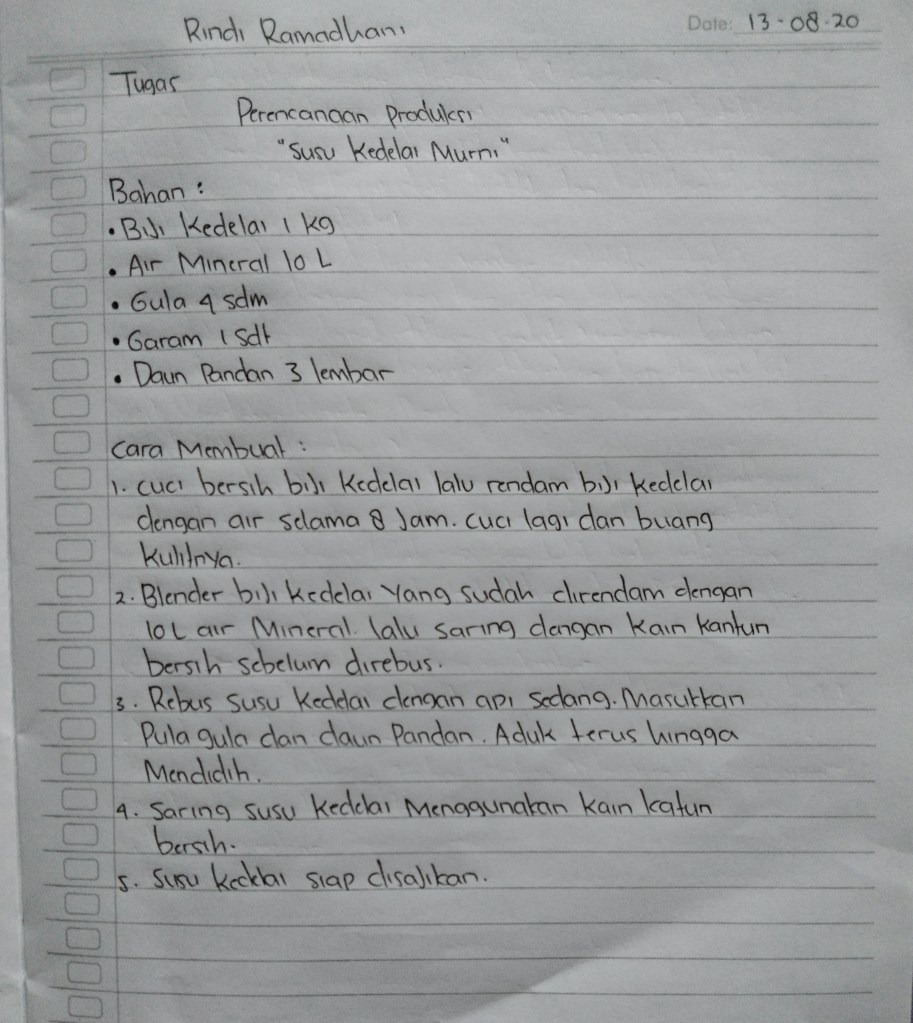 Rindi Ramadhani
Date: 13-08-20
Tugas
Perencanaan Produksi
"Susu Kedelai Murni"
Bahan :
• Biji Kedelai 1 kg
• Air Mineral 10 L
• Gula 4 sdm
• Garam 1 sdt
• Daun Pandan 3 lembar
Cara Membuat :
1. cuci bersih biji kedelai lalu rendam biji kedelai
dengan air selama 8 Jam. cuci lagi dan buang
kulitnya.
2. Blender biji kedelai yang sudah direndam dengan
10 L air Mineral. lalu saring dengan kain kantun
bersih sebelum direbus.
3. Rebus susu kedelai dengan api sedang. Masukkan
Pula gula dan daun Pandan. Aduk terus hingga
Mendidih.
4. Saring susu kedelai Menggunakan kain katun
bersih.
5. Susu kedelai siap disajikan.